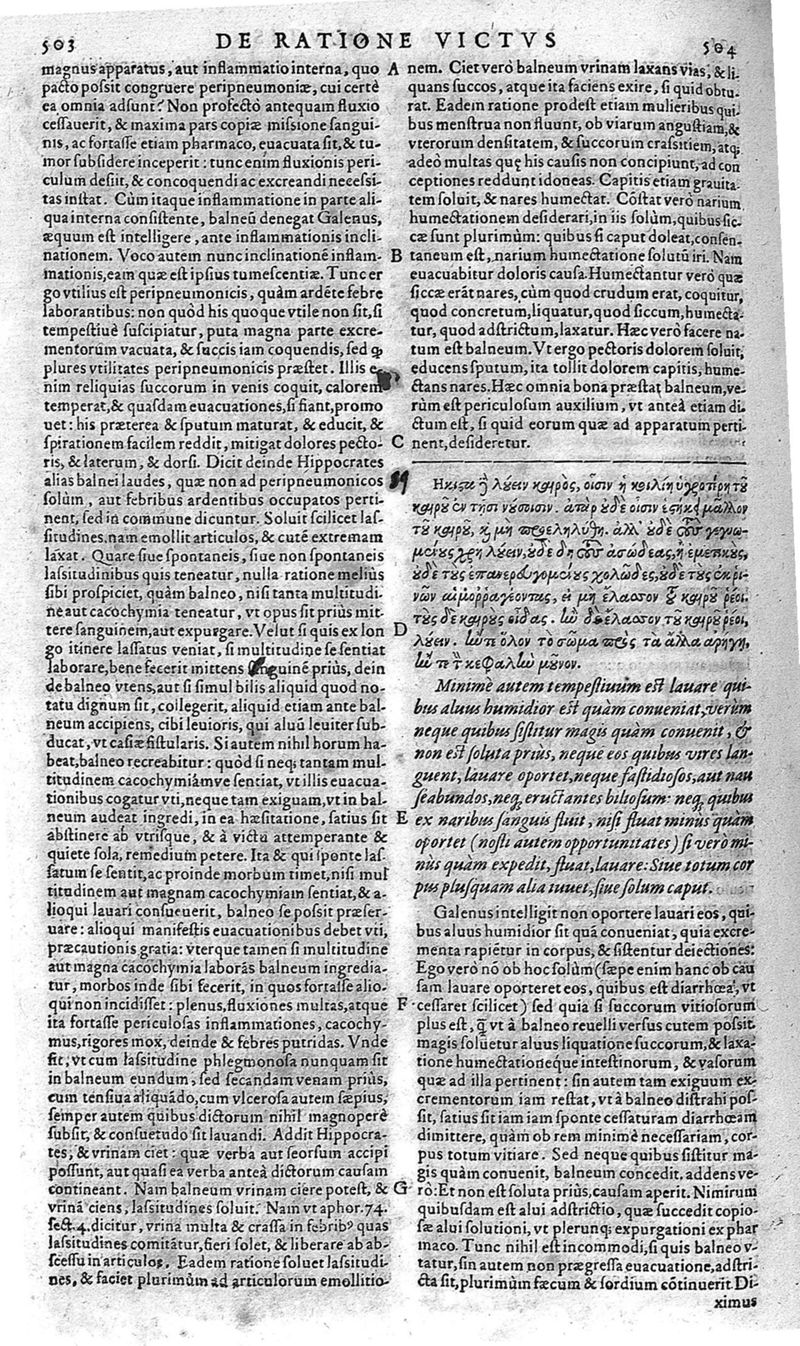 503
DE RATIONE VICTVS
504
magnus apparatus, aut inflammatio interna, quo
pacto possit congruere peripneumoniæ, cui certè
ea omnia adsunt? Non profectò antequam fluxio
cessauerit, & maxima pars copiæ missione sangui-
nis, ac fortasse etiam pharmaco, euacuata sit, & tu-
mor subsidere inceperit: tunc enim fluxionis peri-
culum desiit, & concoquendi ac excreandi necessi-
tas instat. Cùm itaque inflammatione in parte ali-
qua interna consistente, balneũ denegat Galenus,
æquum est intelligere, ante inflammationis incli-
nationem. Voco autem nunc inclinationẽ inflam-
mationis, eam quæ est ipsius tumescentiæ. Tunc er
go vtilius est peripneumonicis, quàm ardẽte febre
laborantibus: non quòd his quoque vtile non sit, si
tempestiuè suscipiatur, puta magna parte excre-
mentorum vacuata, & succis iam coquendis, sed ꝙ
plures vtilitates peripneumonicis præstet. Illis e-
nim reliquias succorum in venis coquit, calorem
temperat, & quasdam euacuationes, si fiant, promo
uet: his præterea & sputum maturat, & educit, &
spirationem facilem reddit, mitigat dolores pecto-
ris, & laterum, & dorsi. Dicit deinde Hippocrates
alias balnei laudes, quæ non ad peripneumonicos
solùm, aut febribus ardentibus occupatos perti-
nent, sed in commune dicuntur. Soluit scilicet las-
situdines, nam emollit articulos, & cutẽ extremam
laxat. Quare siue spontaneis, siue non spontaneis
lassitudinibus quis teneatur, nulla ratione meliùs
sibi prospiciet, quàm balneo, nisi tanta multitudi-
ne aut cacochymia teneatur, vt opus sit priùs mit-
tere sanguinem, aut expurgare. Velut si quis ex lon
go itinere lassatus veniat, si multitudine se sentiat
laborare, bene fecerit mittens sanguinẽ priùs, dein
de balneo vtens, aut si simul bilis aliquid quod no-
tatu dignum sit, collegerit, aliquid etiam ante bal-
neum accipiens, cibi leuioris, qui aluũ leuiter sub-
ducat, vt casiæ fistularis. Si autem nihil horum ha-
beat, balneo recreabitur: quòd si neq; tantam mul-
titudinem cacochymiámve sentiat, vt illis euacua-
tionibus cogatur vti, neque tam exiguam, vt in bal-
neum audeat ingredi, in ea hæsitatione, satius sit
abstinere ab vtrisque, & à victu attemperante &
quiete sola, remedium petere. Ita & qui sponte las-
satum se sentit, ac proinde morbum timet, nisi mul
titudinem aut magnam cacochymiam sentiat, & a-
lioqui lauari consueuerit, balneo se possit præser-
uare: alioqui manifestis euacuationibus debet vti,
præcautionis gratia: vterque tamen si multitudine
aut magna cacochymia laborãs balneum ingredia-
tur, morbos inde sibi fecerit, in quos fortasse alio-
qui non incidisset: plenus, fluxiones multas, atque
ita fortasse periculosas inflammationes, cacochy-
mus, rigores mox, deinde & febres putridas. Vnde
fit, vt cum lassitudine phlegmonosa nunquam sit
in balneum eundum, sed secandam venam priùs,
cum tensiua aliquãdo, cum vlcerosa autem sæpius,
semper autem quibus dictorum nihil magnoperè
subsit, & consuetudo sit lauandi. Addit Hippocra-
tes, & vrinam ciet: quæ verba aut seorsum accipi
possunt, aut quasi ea verba anteà dictorum causam
contineant. Nam balneum vrinam ciere potest, &
vrinã ciens, lassitudines soluit. Nam vt aphor. 74.
sect. 4. dicitur, vrina multa & crassa in febribꝰ quas
lassitudines comitãtur, fieri solet, & liberare ab ab-
scessu in articulos. Eadem ratione soluet lassitudi-
nes, & faciet plurimùm ad articulorum emollitio-
A
B
C
D
E
F
G
nem. Ciet verò balneum vrinam laxans vias, & li-
quans succos, atque ita faciens exire, si quid obtu-
rat. Eadem ratione prodest etiam mulieribus qui-
bus menstrua non fluunt, ob viarum angustiam, &
vterorum densitatem, & succorum crassitiem, atq;
adeò multas quę his causis non concipiunt, ad con
ceptiones reddunt idoneas. Capitis etiam grauita-
tem soluit, & nares humectat. Cõstat verò narium
humectationem desiderari, in iis solùm, quibus sic-
cæ sunt plurimùm: quibus si caput doleat, consen-
taneum est, narium humectatione solutũ iri. Nam
euacuabitur doloris causa. Humectantur verò quæ
siccæ erãt nares, cùm quod crudum erat, coquitur,
quod concretum, liquatur, quod siccum, humecta-
tur, quod adstrictum, laxatur. Hæc verò facere na-
tum est balneum. Vt ergo pectoris dolorem soluit,
educens sputum, ita tollit dolorem capitis, hume-
ctans nares. Hæc omnia bona præstat balneum, ve-
rùm est periculosum auxilium, vt anteà etiam di-
ctum est, si quid eorum quæ ad apparatum perti-
nent, desideretur.
89
Ἥκιστα ἢ λούειν καιρὸς, οἷσιν ἡ κοιλίη ὑγροτέρη τοῦ
καιροῦ ἐν τῇσι νούσοισιν. ἀτὰρ οὐδὲ οἷσιν ἕστηκε μᾶλλον
τοῦ καιροῦ, καὶ μὴ προεληλύθη. ἀλλ' οὐδὲ τοὺς γεγυιω-
μένους χρὴ λούειν, οὐδὲ δὴ τοὺς ἀσώδεας, ἢ ἐμετικοὺς,
οὐδὲ τοὺς ἐπανερευγομένους χολῶδες, οὐδὲ τοὺς ἐκ ῥι-
νῶν αἱμορραγέοντας, εἰ μὴ ἔλασσον τοῦ καιροῦ ῥέοι.
τοὺς δὲ καιροὺς οἶδας. ἢν δὲ ἔλασσον τοῦ καιροῦ ῥέοι,
λούειν. ἤν τε ὅλον τὸ σῶμα πρὸς τὰ ἄλλα ἀρήγῃ,
ἤν τε τὴν κεφαλὴν μοῦνον.
Minimè autem tempestiuum est lauare qui-
bus aluus humidior est quàm conueniat, verùm
neque quibus sistitur magis quàm conuenit, &
non est soluta priùs, neque eos quibus vires lan-
guent, lauare oportet, neque fastidiosos, aut nau
seabundos, neq; eructantes biliosum: neq; quibus
ex naribus sanguis fluit, nisi fluat minùs quàm
oportet (nosti autem opportunitates) si verò mi-
nùs quàm expedit, fluat, lauare: Siue totum cor
pus plusquam alia iuuet, siue solum caput.
Galenus intelligit non oportere lauari eos, qui-
bus aluus humidior sit quã conueniat, quia excre-
menta rapiẽtur in corpus, & sistentur deiectiones:
Ego verò nõ ob hoc solùm (sæpe enim hanc ob cau
sam lauare oporteret eos, quibus est diarrhœa, vt
cessaret scilicet) sed quia si succorum vitiosorum
plus est, q̃ vt à balneo reuelli versus cutem possit,
magis soluetur aluus liquatione succorum, & laxa-
tione humectationeque intestinorum, & vasorum
quæ ad illa pertinent: sin autem tam exiguum ex-
crementorum iam restat, vt à balneo distrahi pos-
sit, satius sit iam iam sponte cessaturam diarrhœam
dimittere, quàm ob rem minimè necessariam, cor-
pus totum vitiare. Sed neque quibus sistitur ma-
gis quàm conuenit, balneum concedit, addens ve-
rò: Et non est soluta priùs, causam aperit. Nimirum
quibusdam est alui adstrictio, quæ succedit copio-
sæ alui solutioni, vt plerunq; expurgationi ex phar
maco. Tunc nihil est incommodi, si quis balneo v-
tatur, sin autem non prægressa euacuatione, adstri-
cta sit, plurimùm fæcum & sordium cõtinuerit. Di-
ximus